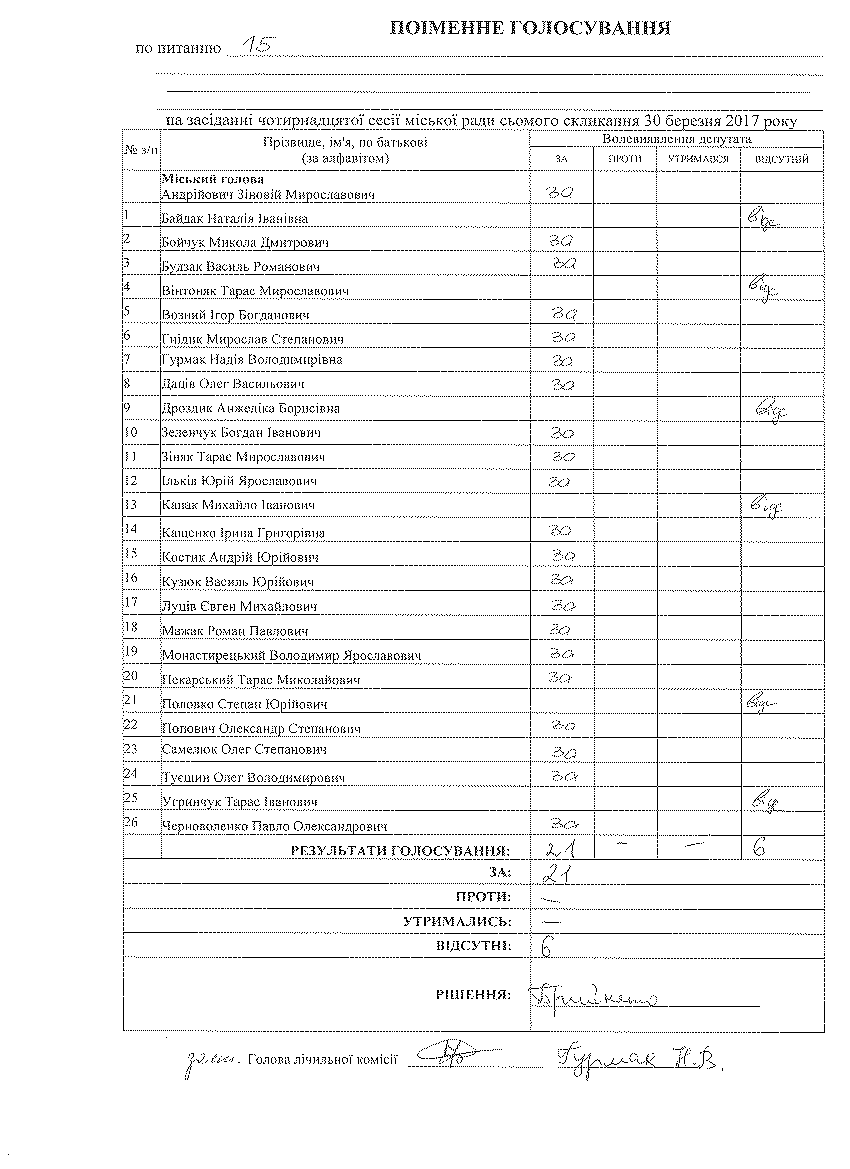 ПОІМЕННЕ ГОЛОСУВАННЯ
по питанню 15
на засіданні чотирнадцятої сесії міської ради сьомого скликання 30 березня 2017 року
№ з/п Прізвище, ім'я, по батькові (за алфавітом) Волевиявлення депутата
ЗА ПРОТИ УТРИМАВСЯ ВІДСУТНІЙ
Міський голова
Андрійович Зіновій Мирославович за
1 Байдак Наталія Іванівна відс
2 Бойчук Микола Дмитрович за
3 Будзак Василь Романович за
4 Вінтоняк Тарас Мирославович відс
5 Возний Ігор Богданович за
6 Гнідик Мирослав Степанович за
7 Гурмак Надія Володимирівна за
8 Даців Олег Васильович за
9 Дроздик Анжеліка Борисівна відс
10 Зеленчук Богдан Іванович за
11 Зіняк Тарас Мирославович за
12 Ільків Юрій Ярославович за
13 Капак Михайло Іванович відс
14 Кащенко Ірина Григорівна за
15 Костик Андрій Юрійович за
16 Кузюк Василь Юрійович за
17 Луців Євген Михайлович за
18 Мажак Роман Павлович за
19 Монастирецький Володимир Ярославович за
20 Пекарський Тарас Миколайович за
21 Половко Степан Юрійович відс
22 Попович Олександр Степанович за
23 Самелюк Олег Степанович за
24 Туєшин Олег Володимирович за
25 Угринчук Тарас Іванович відс
26 Черноволенко Павло Олександрович за
РЕЗУЛЬТАТИ ГОЛОСУВАННЯ: 21 – – 6
ЗА: 21
ПРОТИ: —
УТРИМАЛИСЬ: —
ВІДСУТНІ: 6
РІШЕННЯ: Прийнято
Голова лічильної комісії Гурмак Н.В.